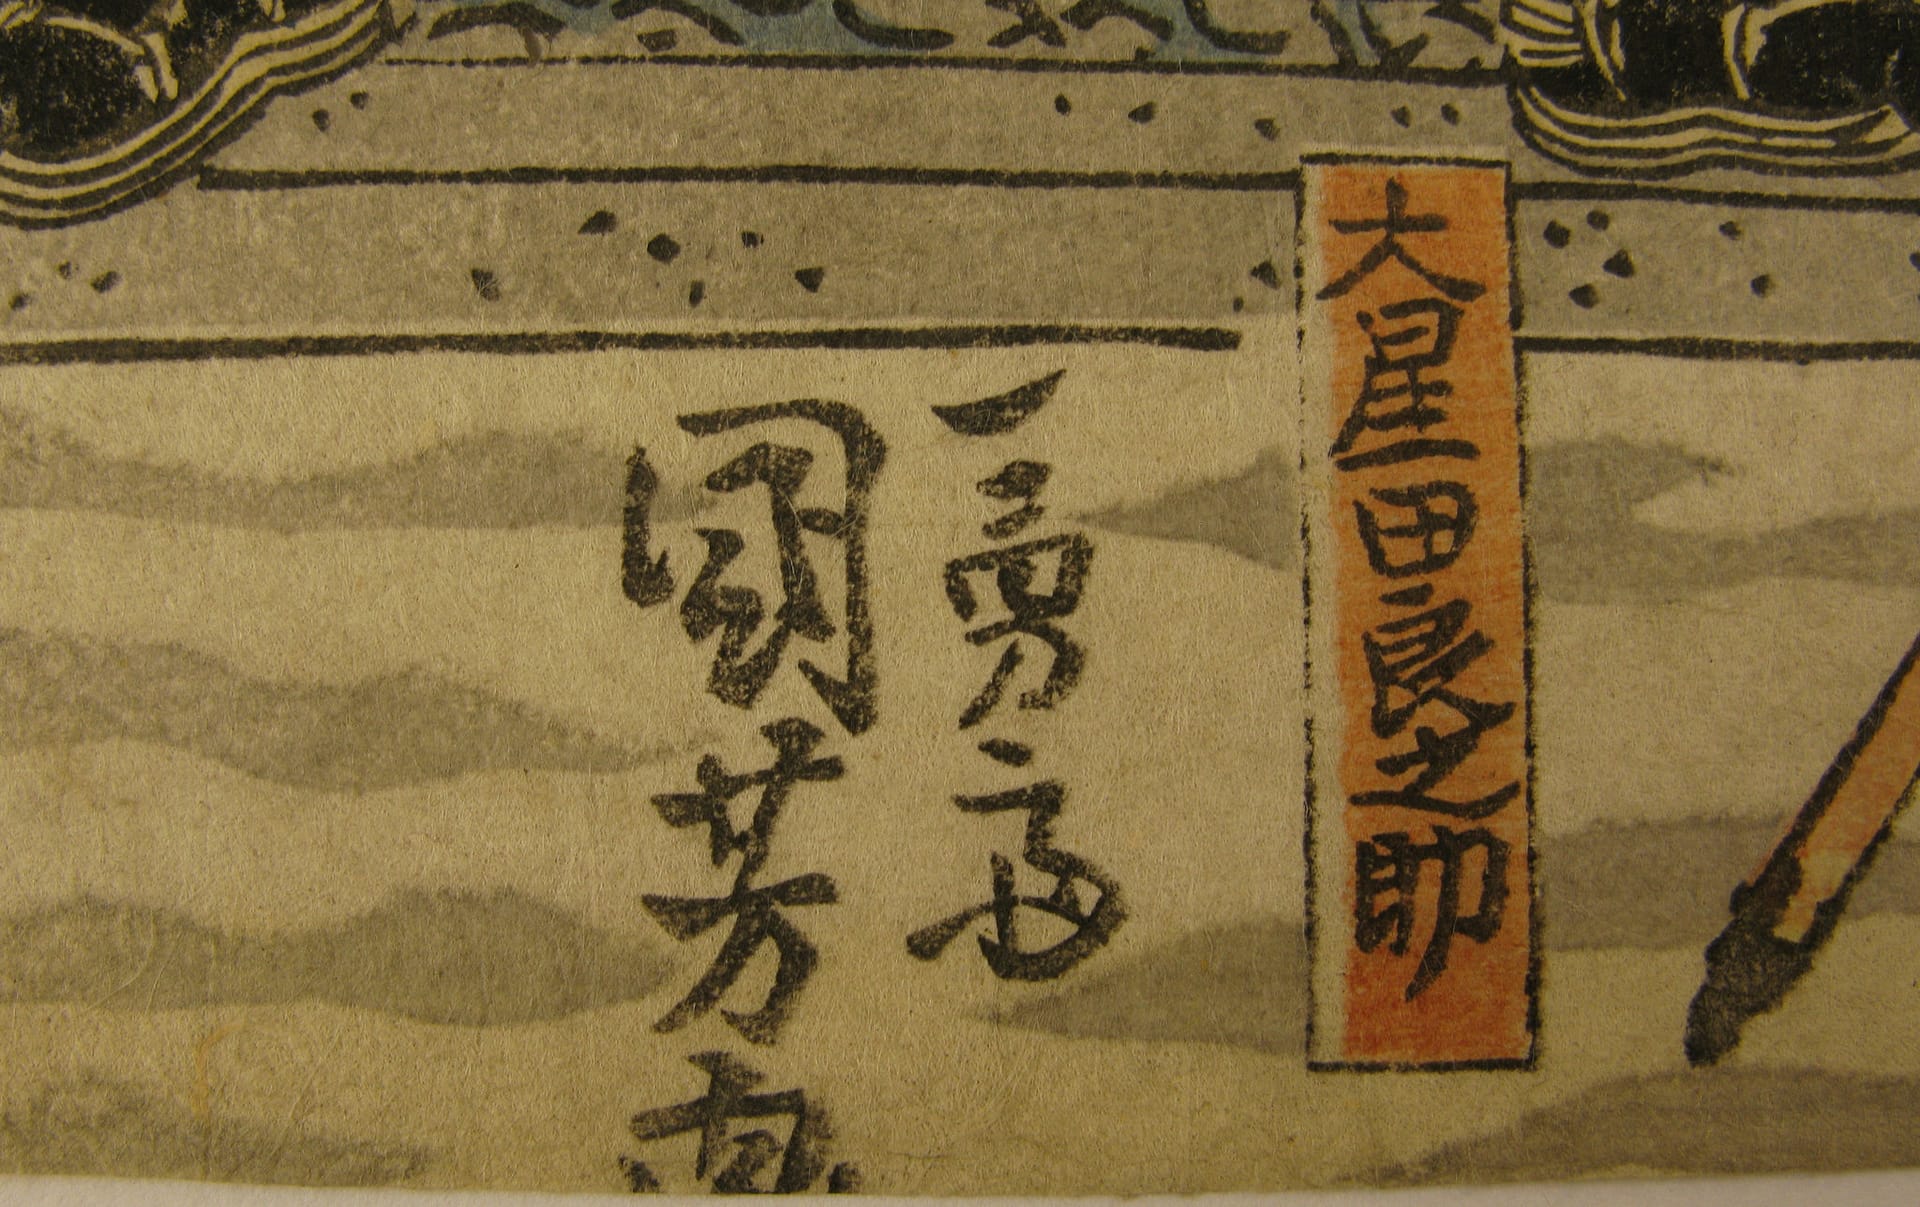 大星由良之助
一勇斎
國芳画